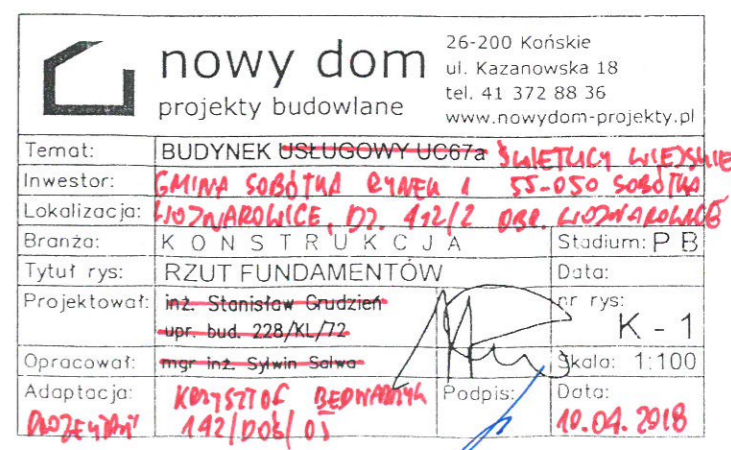 nowy dom
projekty budowlane
26-200 Końskie
ul. Kazanowska 18
tel. 41 372 88 36
www.nowydom-projekty.pl
Temat: BUDYNEK USŁUGOWY UC67a ŚWIETLICY WIEJSKIE
Inwestor: GMINA SOBÓTKA RYNEK 1 55-050 SOBÓTKA
Lokalizacja: DZ. 412/2 OBR.
Branża: KONSTRUKCJA Stadium: PB
Tytuł rys: RZUT FUNDAMENTÓW Data:
Projektował: inż. Stanisław Grudzień nr rys:
upr. bud. 228/KL/72 K - 1
Opracował: mgr inż. Sylwin Salwa Skala: 1:100
Adaptacja: KRZYSZTOF BEDNARCZYK Podpis: Data:
142/DOŚ/05 10.04.2018